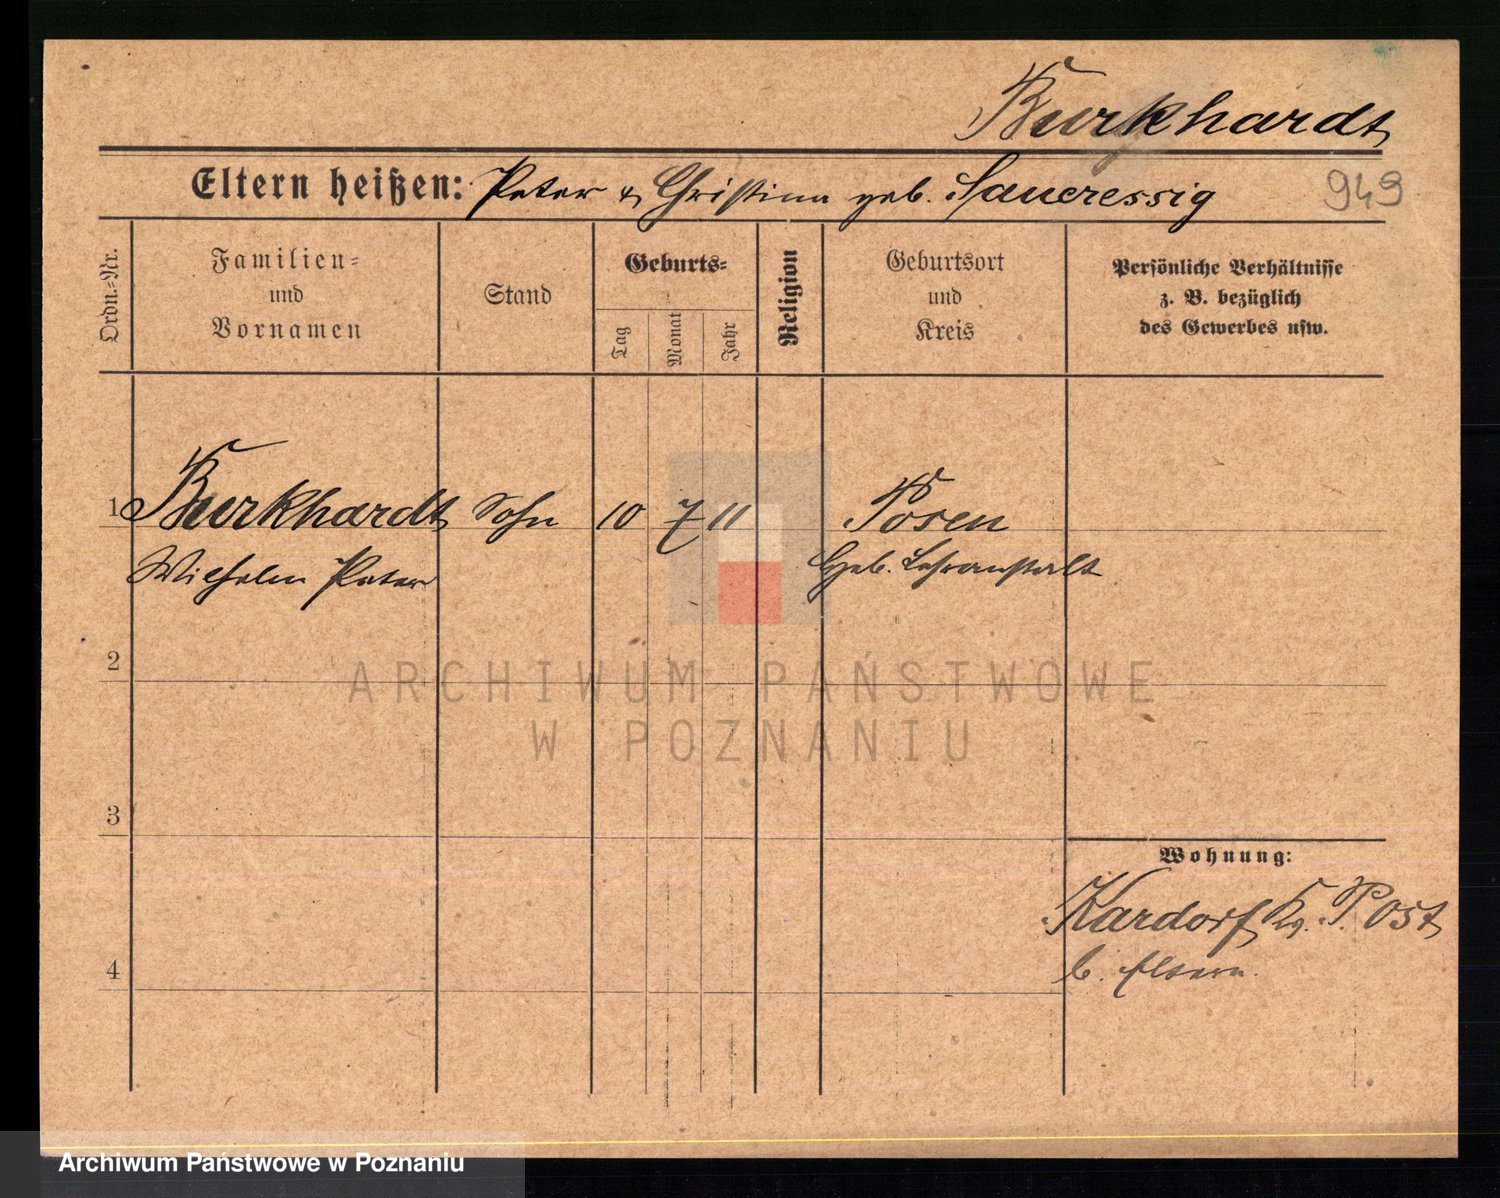 Burkhardt
Eltern heißen: Peter & Christina geb. Saueressig
943
Ordn.-Nr.
Familien-
und
Vornamen
Stand
Geburts-
Tag
Monat
Jahr
Religion
Geburtsort
und
Kreis
Persönliche Verhältnisse
z. B. bezüglich
des Gewerbes usw.
1 Burkhardt Sohn 10 7 11 Posen
Wilhelm Peter Heb. Lehranstalt
2
ARCHIWUM PAŃSTWOWE
W POZNANIU
3
Wohnung:
Kardorf Kr. P. Ost
b. Eltern.
4
Archiwum Państwowe w Poznaniu